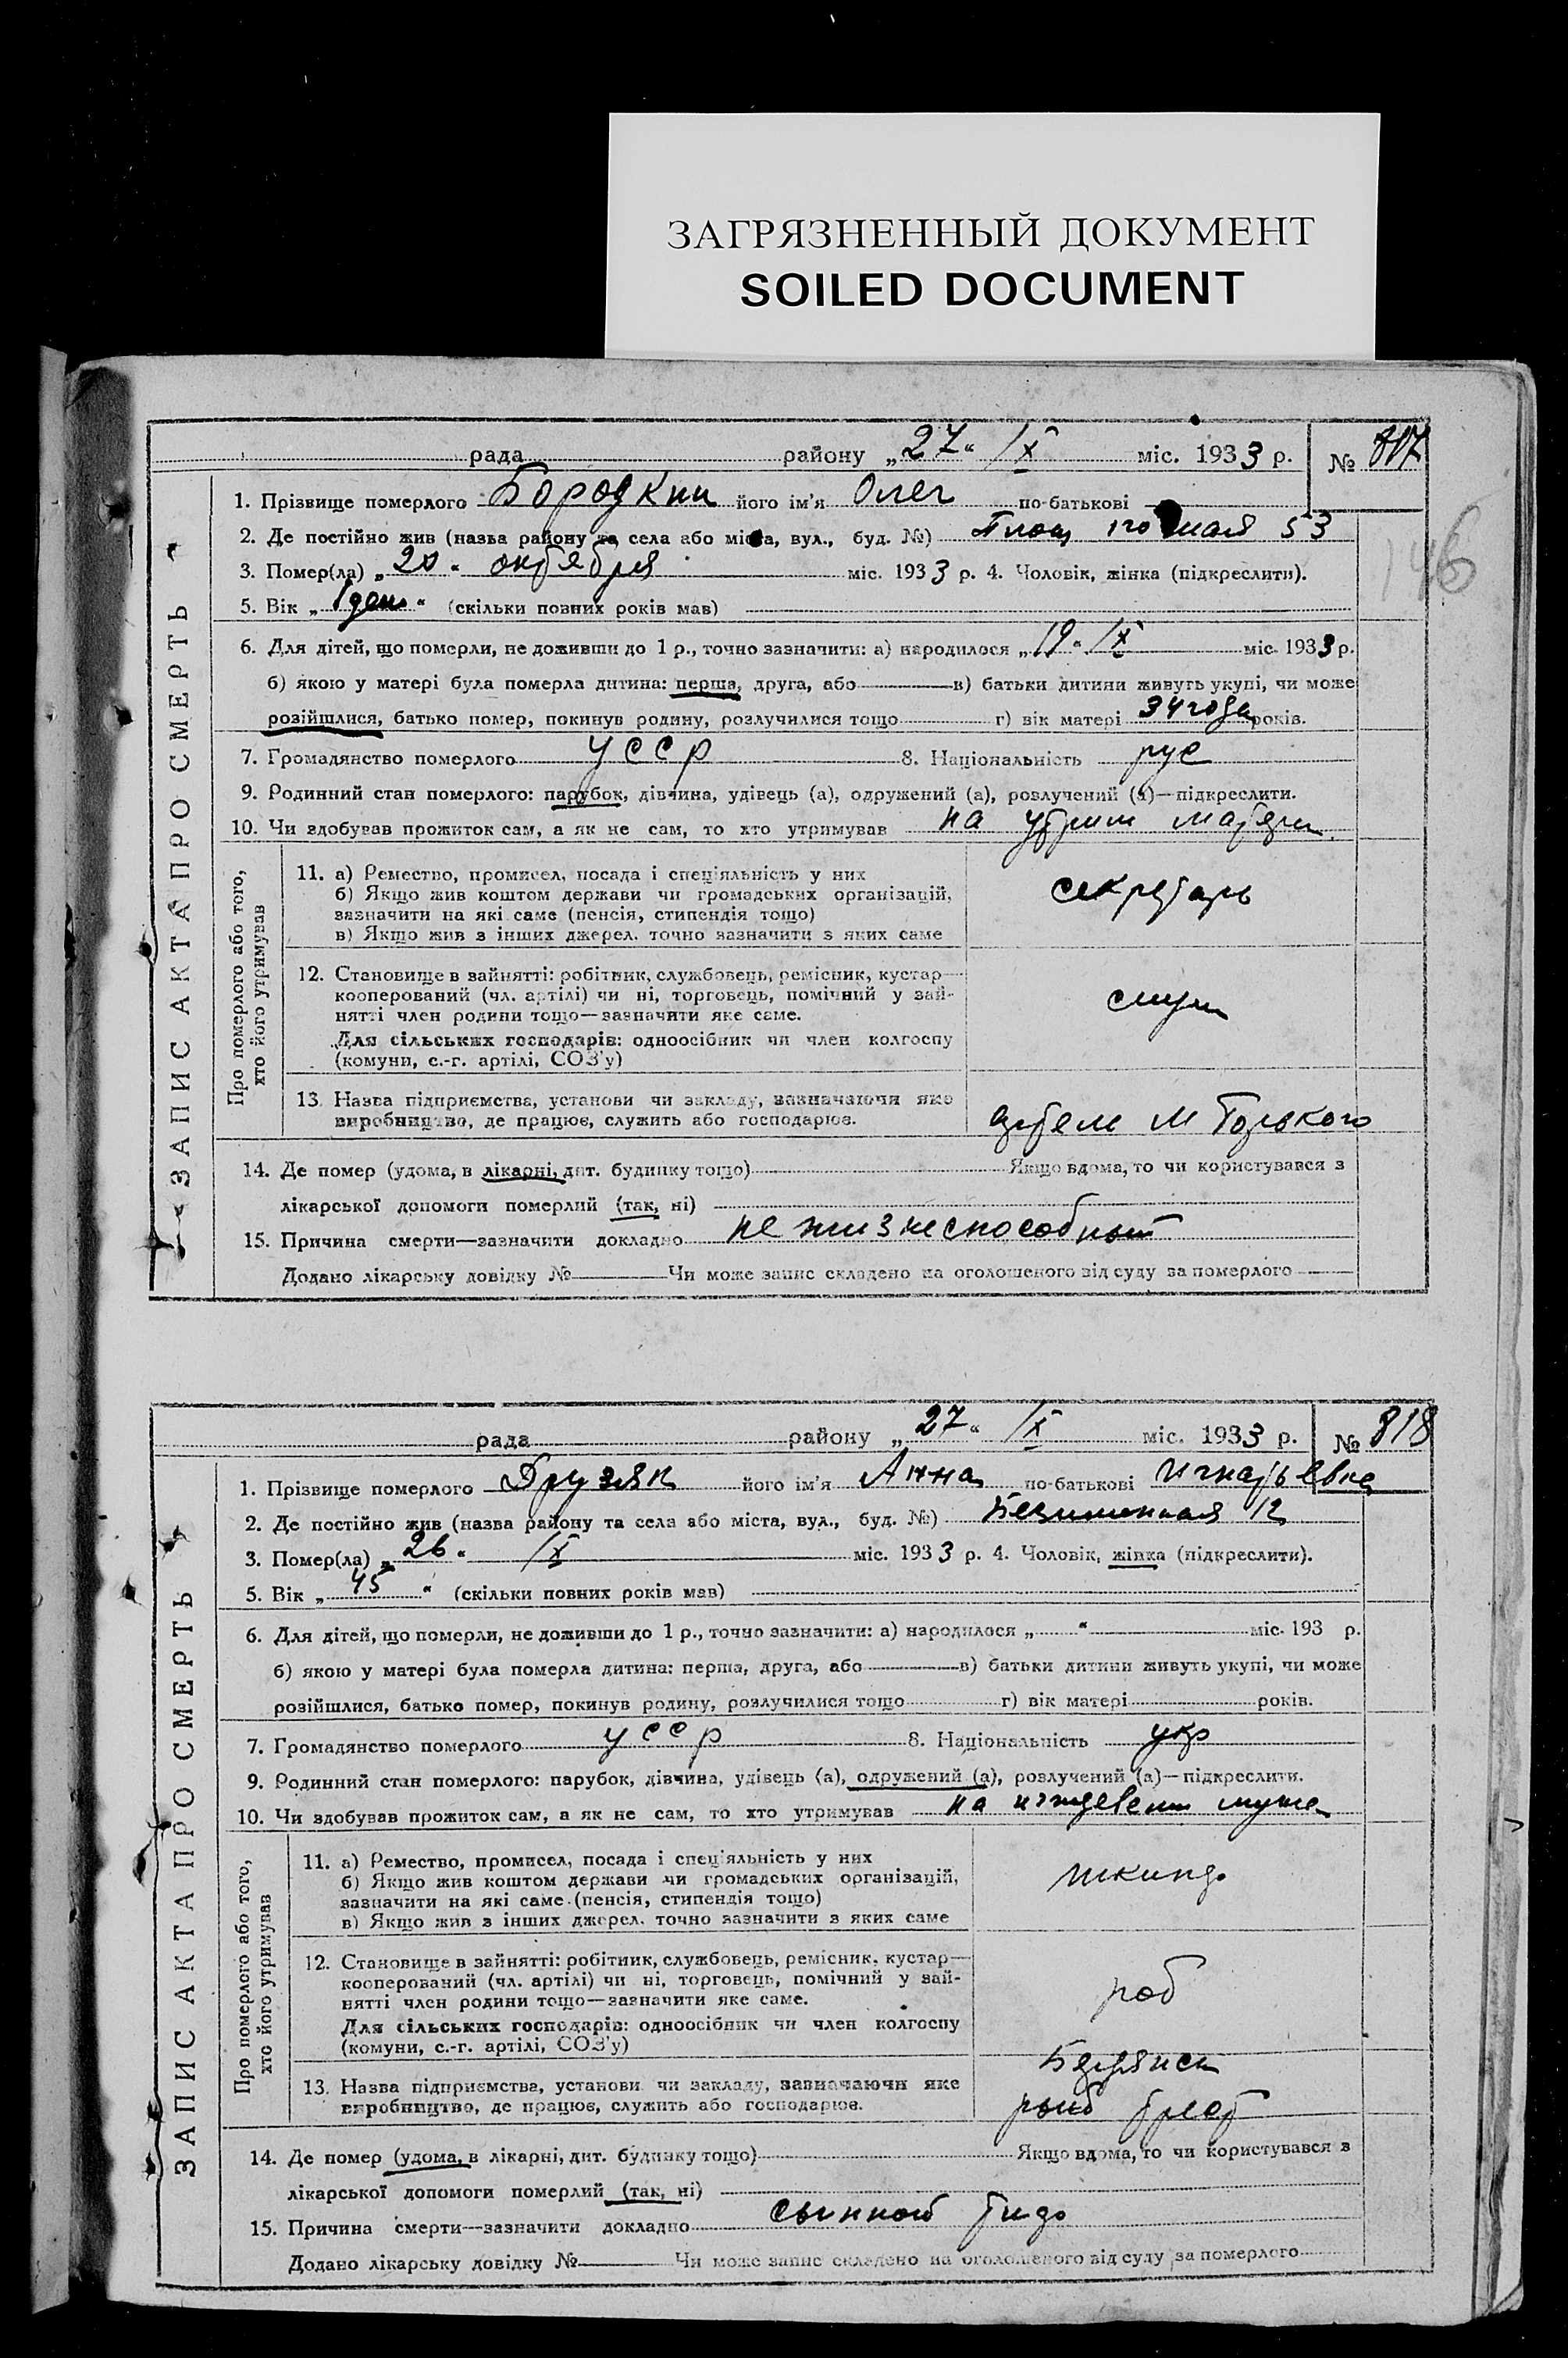 ЗАГРЯЗНЕННЫЙ ДОКУМЕНТ
SOILED DOCUMENT
146
ЗАПИС АКТА ПРО СМЕРТЬ
рада району „27“ IX міс. 1933 р. № 817
1. Прізвище померлого Бородкин його ім'я Олег по-батькові
2. Де постійно жив (назва району та села або міста, вул., буд. №) Площ 1го мая 53
3. Помер(ла) „20“ октября міс. 1933 р. 4. Чоловік, жінка (підкреслити).
5. Вік „1 день“ (скільки повних років мав)
6. Для дітей, що померли, не доживши до 1 р., точно зазначити: а) народилося „19“ IX міс. 1933 р.
б) якою у матері була померла дитина: перша, друга, або в) батьки дитини живуть укупі, чи може
розійшлися, батько помер, покинув родину, розлучилися тощо г) вік матері 34 года років.
7. Громадянство померлого УССР 8. Національність рус
9. Родинний стан померлого: парубок, дівчина, удівець (а), одружений (а), розлучений (а)—підкреслити.
10. Чи здобував прожиток сам, а як не сам, то хто утримував на матери
Про померлого або того,
хто його утримував
11. а) Ремество, промисел, посада і спец'яльність у них
б) Якщо жив коштом держави чи громадських організацій,
зазначити на які саме (пенсія, стипендія тощо)
в) Якщо жив з інших джерел. точно зазначити з яких саме
секретарь
12. Становище в зайнятті: робітник, службовець, ремісник, кустар—
кооперований (чл. артілі) чи ні, торговець, помічний у зай-
нятті член родини тощо—зазначити яке саме.
Для сільських господарів: одноосібник чи член колгоспу
(комуни, с.-г. артілі, СОЗ'у)
13. Назва підприємства, установи чи закладу, зазначаючи яке
виробництво, де працює, служить або господарює.
М Горького
14. Де помер (удома, в лікарні, дит. будинку тощо) Якщо вдома, то чи користувався з
лікарської допомоги померлий (так, ні)
15. Причина смерти—зазначити докладно не жизнеспособный
Додано лікарську довідку № Чи може запис складено на оголошеного від суду за померлого
ЗАПИС АКТА ПРО СМЕРТЬ
рада району „27“ IX міс. 1933 р. № 818
1. Прізвище померлого Друзяк його ім'я Анна по-батькові Игнатьевна
2. Де постійно жив (назва району та села або міста, вул., буд. №) Безименная 12
3. Помер(ла) „26“ IX міс. 1933 р. 4. Чоловік, жінка (підкреслити).
5. Вік „45“ (скільки повних років мав)
6. Для дітей, що померли, не доживши до 1 р., точно зазначити: а) народилося „ “ міс. 193 р.
б) якою у матері була померла дитина: перша, друга, або в) батьки дитини живуть укупі, чи може
розійшлися, батько помер, покинув родину, розлучилися тощо г) вік матері років.
7. Громадянство померлого УССР 8. Національність укр
9. Родинний стан померлого: парубок, дівчина, удівець (а), одружений (а), розлучений (а)—підкреслити.
10. Чи здобував прожиток сам, а як не сам, то хто утримував на мужа
Про померлого або того,
хто його утримував
11. а) Ремество, промисел, посада і спец'яльність у них
б) Якщо жив коштом держави чи громадських організацій,
зазначити на які саме (пенсія, стипендія тощо)
в) Якщо жив з інших джерел. точно зазначити з яких саме
12. Становище в зайнятті: робітник, службовець, ремісник, кустар—
кооперований (чл. артілі) чи ні, торговець, помічний у зай-
нятті член родини тощо—зазначити яке саме.
Для сільських господарів: одноосібник чи член колгоспу
(комуни, с.-г. артілі, СОЗ'у)
роб
13. Назва підприємства, установи чи закладу, зазначаючи яке
виробництво, де працює, служить або господарює.
Бердянск
рыб трест
14. Де помер (удома, в лікарні, дит. будинку тощо) Якщо вдома, то чи користувався з
лікарської допомоги померлий (так, ні)
15. Причина смерти—зазначити докладно сыпной тиф
Додано лікарську довідку № Чи може запис складено на оголошеного від суду за померлого